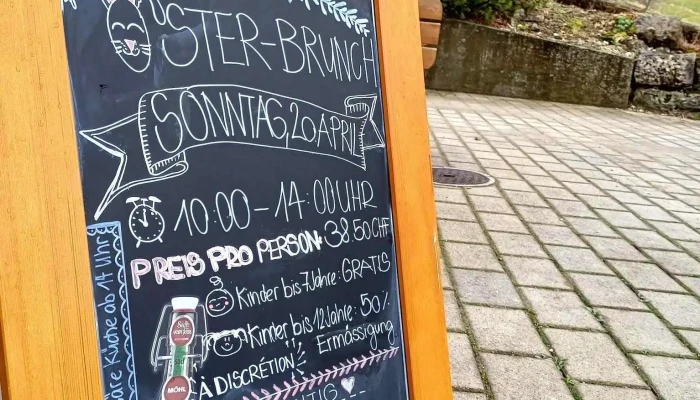 OSTER-BRUNCH
SONNTAG, 20 APRIL
10:00-14:00 UHR
PREIS PRO PERSON 38.50 CHF
Kinder bis 7 Jahre: GRATIS
Kinder bis 12 Jahre: 50%
Ermässigung
À DISCRÉTION
Küche ab 14 Uhr
MÖHL